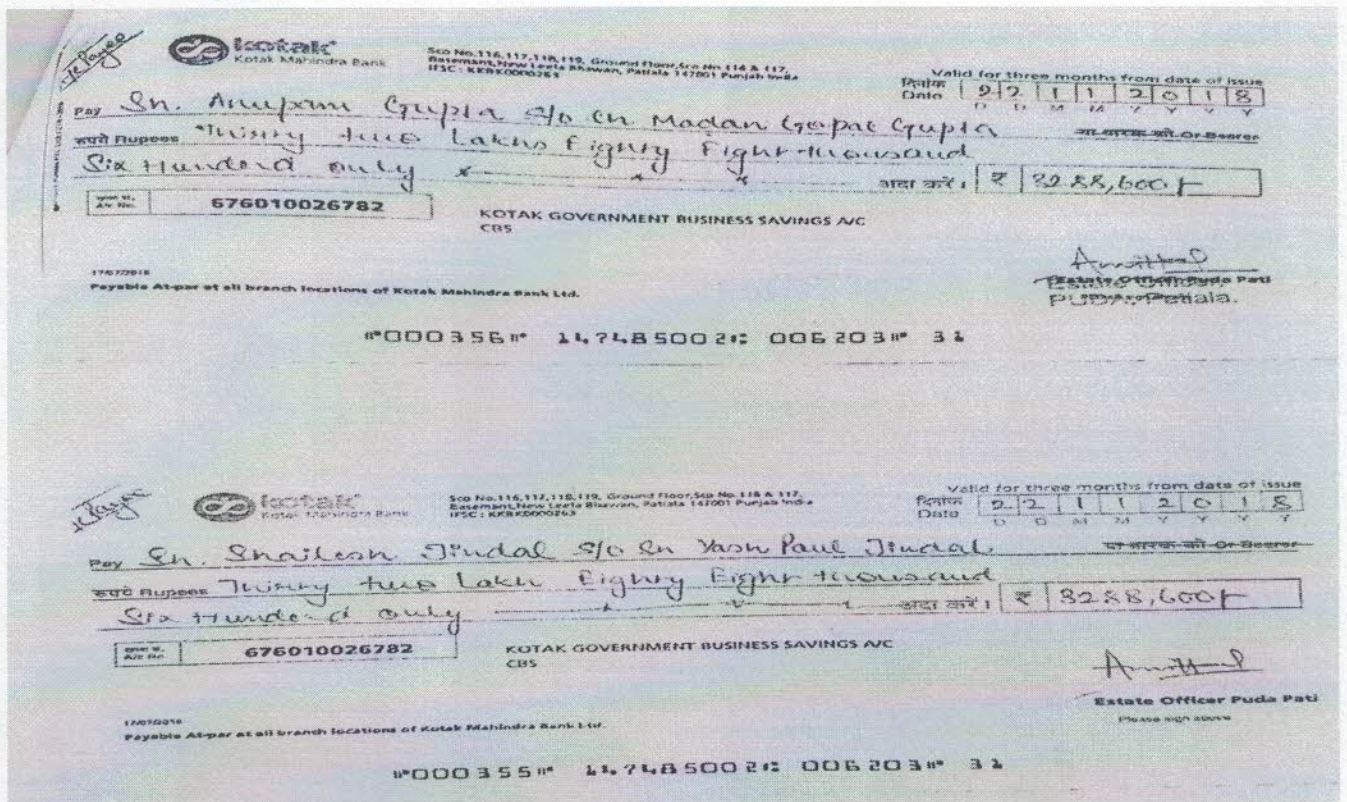 kotak
Kotak Mahindra Bank
Sco No.116,117,118,119, Ground Floor, Sco No 116 & 117,
Basemant, New Leela Bhawan, Patiala 147001 Punjab India
IFSC : KKBK0000263
Valid for three months from date of issue
दिनांक
Date 2 2 1 1 2 0 1 8
D D M M Y Y Y Y
A/c Payee
Pay Sh. Anupam Gupta S/o Sh Madan Gopal Gupta या धारक को Or Bearer
रुपये Rupees Thirty two Lakhs Eighty Eight thousand
Six Hunderd only अदा करें। ₹ 3288,600/-
A/c No. 676010026782
KOTAK GOVERNMENT BUSINESS SAVINGS A/C
CBS
17/07/2018
Payable At-par at all branch locations of Kotak Mahindra Bank Ltd.
Estate Officer Puda Pati
PUDA, Patiala.
⑈000356⑈ 147485002⑆ 006203⑈ 31
A/c Payee
kotak
Kotak Mahindra Bank
Sco No.116,117,118,119, Ground Floor, Sco No 116 & 117,
Basemant, New Leela Bhawan, Patiala 147001 Punjab India
IFSC : KKBK0000263
Valid for three months from date of issue
दिनांक
Date 2 2 1 1 2 0 1 8
D D M M Y Y Y Y
Pay Sh. Shailesh Jindal S/o Sh Yash Paul Jindal या धारक को Or Bearer
रुपये Rupees Thirty two Lakh Eighty Eight thousand
Six Hunderd only अदा करें। ₹ 3288,600/-
A/c No. 676010026782
KOTAK GOVERNMENT BUSINESS SAVINGS A/C
CBS
Estate Officer Puda Pati
Please sign above
17/07/2018
Payable At-par at all branch locations of Kotak Mahindra Bank Ltd.
⑈000355⑈ 147485002⑆ 006203⑈ 31